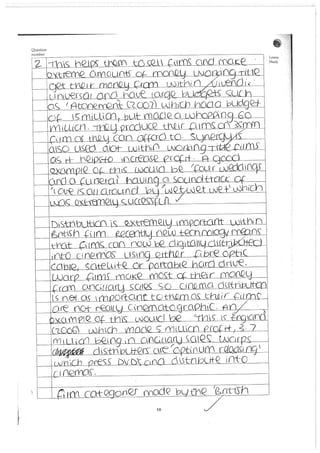 Question
number
Leave
blank
2 This helps them to sell films and make
extreme amounts of money. Working Title
get their money from within Vivendi,
Universal and have large budgets such
as 'Atonement (2007) which had a budget
of 15 million, but made a whopping 60
million. They produce their films on 35mm
film or they can afford to. Synergy is
also used alot within working title films
as it helps to increase profit. A good
example of this would be 'Four weddings
and a funeral' having a soundtrack of
'Love is all around' by 'wet wet wet' which
was extremely successful.
Distribution is extremely important within
British film. Recently new technology means
that films can now be digitally distributed
into cinemas using either fibre optic
cable, satellite or portable hard drive.
Warp films make most of their money
from ancillary sales so cinema distribution
is not as important to them as their films
are not really cinematographic. An
example of this would be 'This is England
(2006) which made 5 million profit, 3.7
million being in ancillary sales. Warps
distributers are 'optimum releasing'
which press DVDs and distribute into
cinemas.
Film categories made by the 'British
10